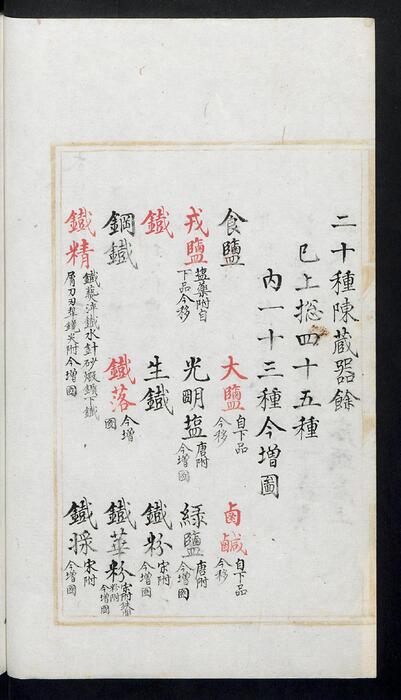 二十種陳藏器餘
已上捴四十五種
内一十三種今增圖
食鹽 大鹽 自下品今移 鹵鹹 自下品今移
戎鹽 盐藥附自下品今移 光明塩 唐附今增圖 緑鹽 唐附今增圖
鐵 生鐵 鐵粉 宋附今增圖
鋼鐵 鐵落 今增圖 鐵華粉 宋附 粉附今增圖
鐵精 鐵爇淬鐵水針砂煅鐵下鐵屑刀刃犁鑱尖附今增圖 鐵漿 宋附今增圖